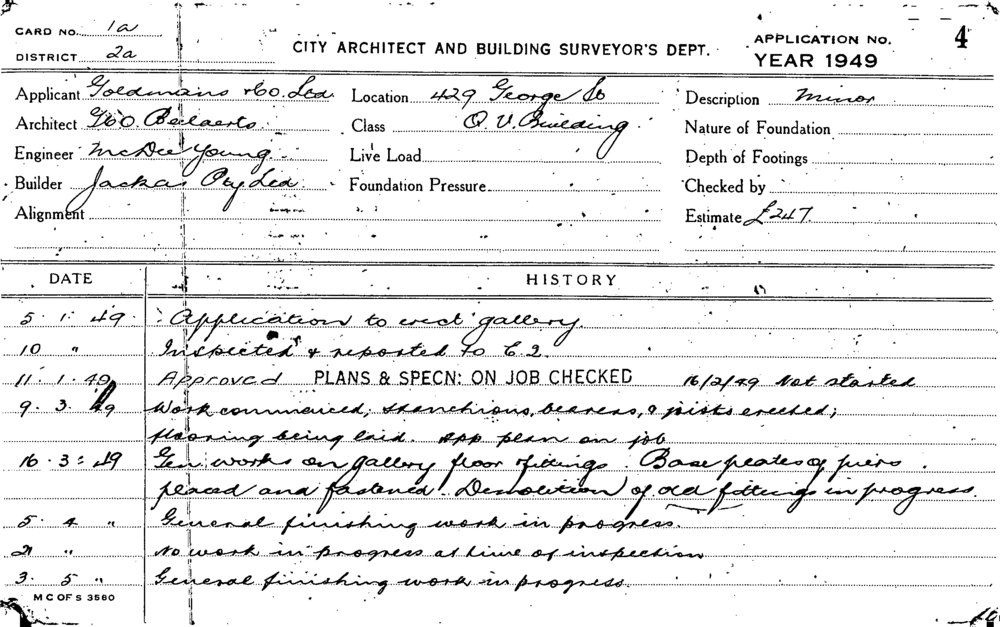 CARD NO. 1a
DISTRICT 2a
CITY ARCHITECT AND BUILDING SURVEYOR'S DEPT.
APPLICATION NO. 4
YEAR 1949
Applicant Goldmans & Co. Ltd. Location 429 George St Description Minor
Architect Class Q.V. Building Nature of Foundation
Engineer McDee Young Live Load Depth of Footings
Builder Jackas Pty Ltd Foundation Pressure Checked by
Alignment Estimate £247.
DATE HISTORY
5. 1. 49. Application to erect gallery.
10 " Inspected & reported to C.2.
11. 1. 49 Approved PLANS & SPECN: ON JOB CHECKED 16/2/49 Not started
9. 3. 49 Work commenced; stanchions, bearers, & joists erected;
flooring being laid. App plan on job
16. 3. 49 Gen. works on gallery floor & fittings. Base plates of piers
placed and fastened. Demolition of old fittings in progress.
5. 4 " General finishing work in progress.
21 " No work in progress at time of inspection
3. 5 " General finishing work in progress.
M C OF S 3580